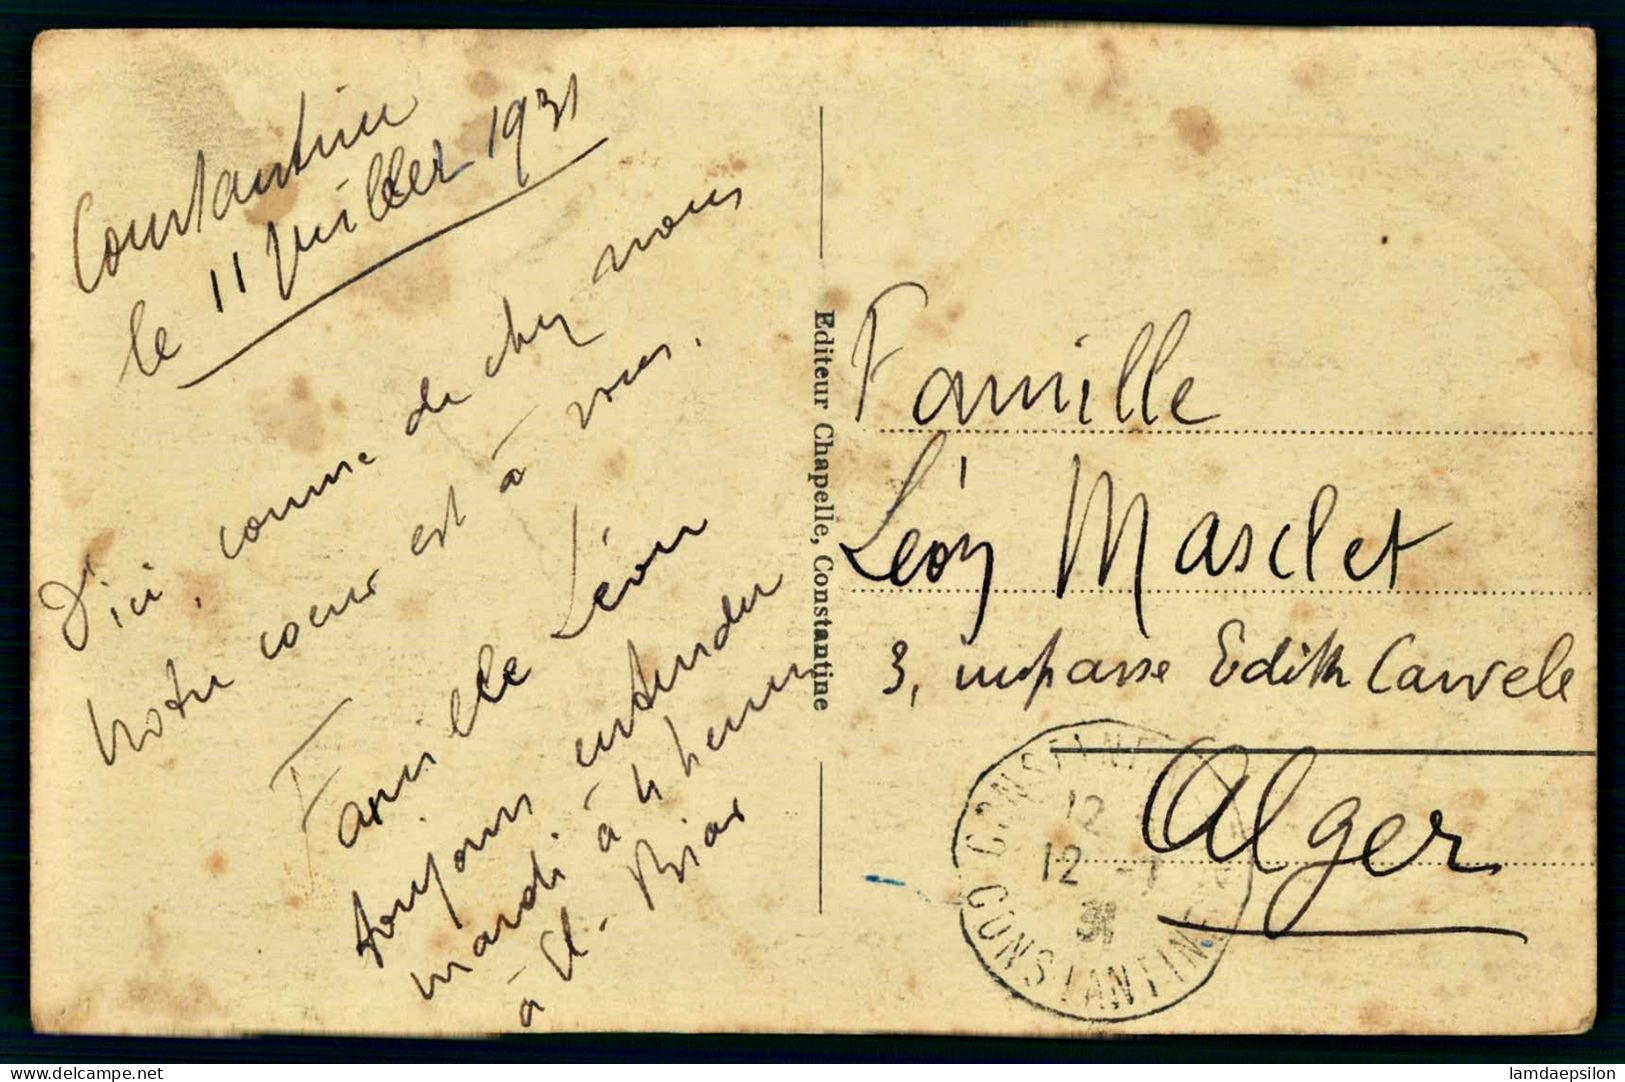 Constantine
le 11 Juillet 1931
D'ici, comme de chez nous
notre coeur est à vous.
Famille Léon
toujours entendu
mardi à 4 heures
à El-Biar
Editeur Chapelle, Constantine
Famille
Léon Masclet
3, impasse Edith Cawele
Alger
CONSTANTINE
12
12 -7
31
CONSTANTINE
delcampe.net
lamdaepsilon